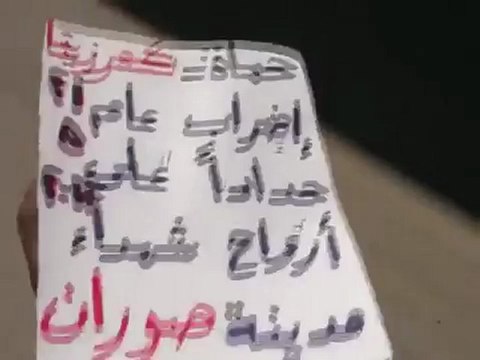 حماة: كفرزيتا
إضراب عام
حداداً على
أرواح شهداء
مدينة صوران